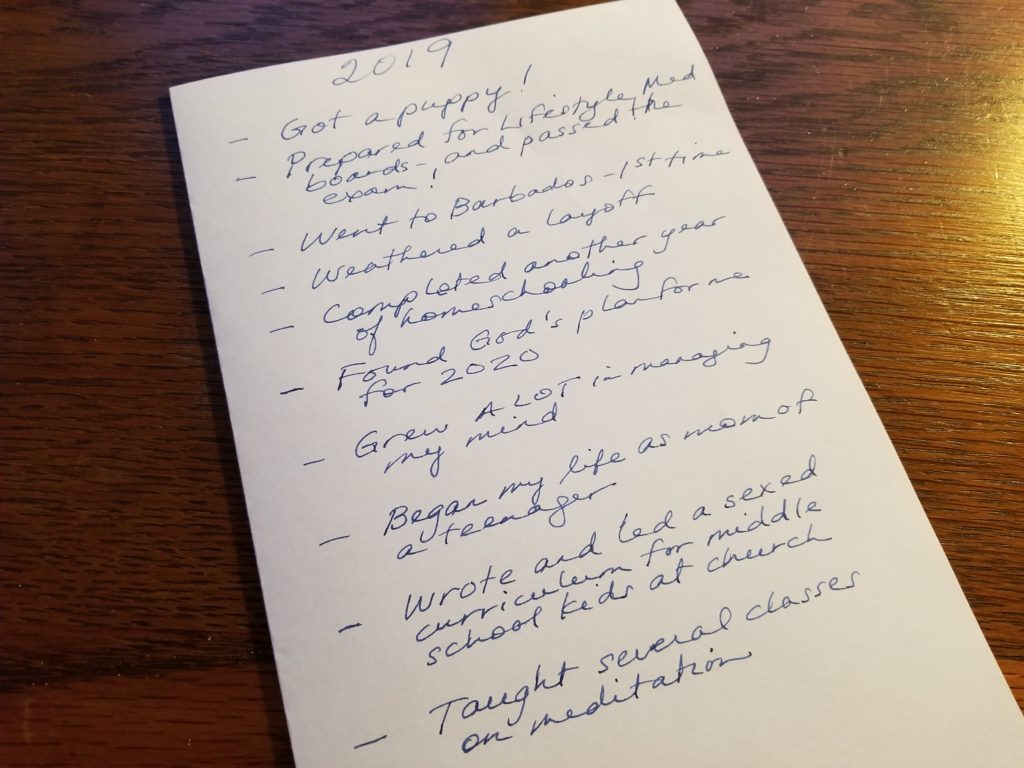 2019
- Got a puppy!
- Prepared for Lifestyle Med
boards - and passed the
exam!
- Went to Barbados - 1st time
- Weathered a layoff
- Completed another year
of homeschooling
- Found God's plan for me
for 2020
- Grew A LOT in managing
my mind
- Began my life as mom of
a teenager
- Wrote and led a sexed
curriculum for middle
school kids at church
- Taught several classes
on meditation